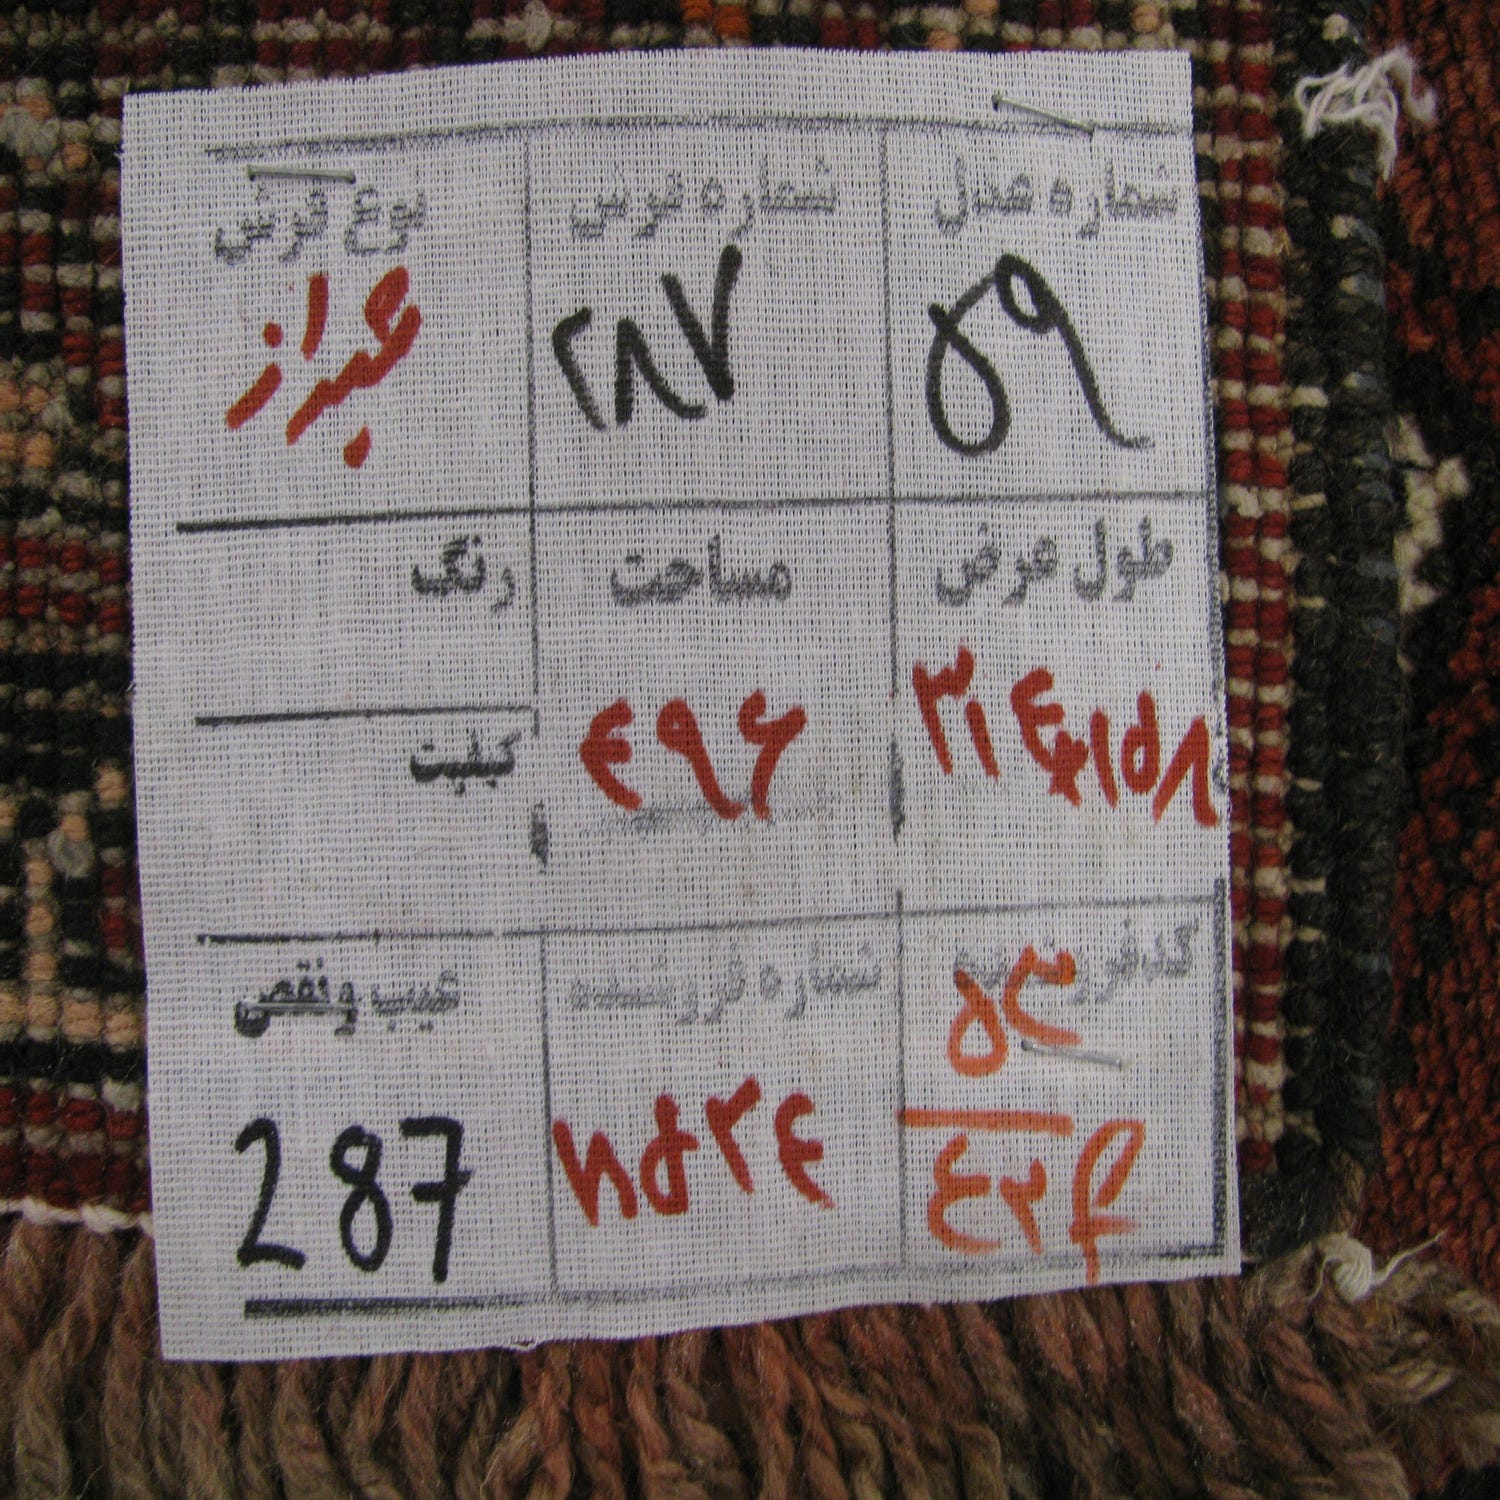 شماره عدل شماره فرش نوع فرش
۵۹ ۲۸۷ شیراز
طول عرض مساحت رنگ
۳۱۴×۱۵۸ ۴۹۶
کبلیت
شماره فروشنده عیب و نقص
۵۳
۱۸۵۲۴ 287